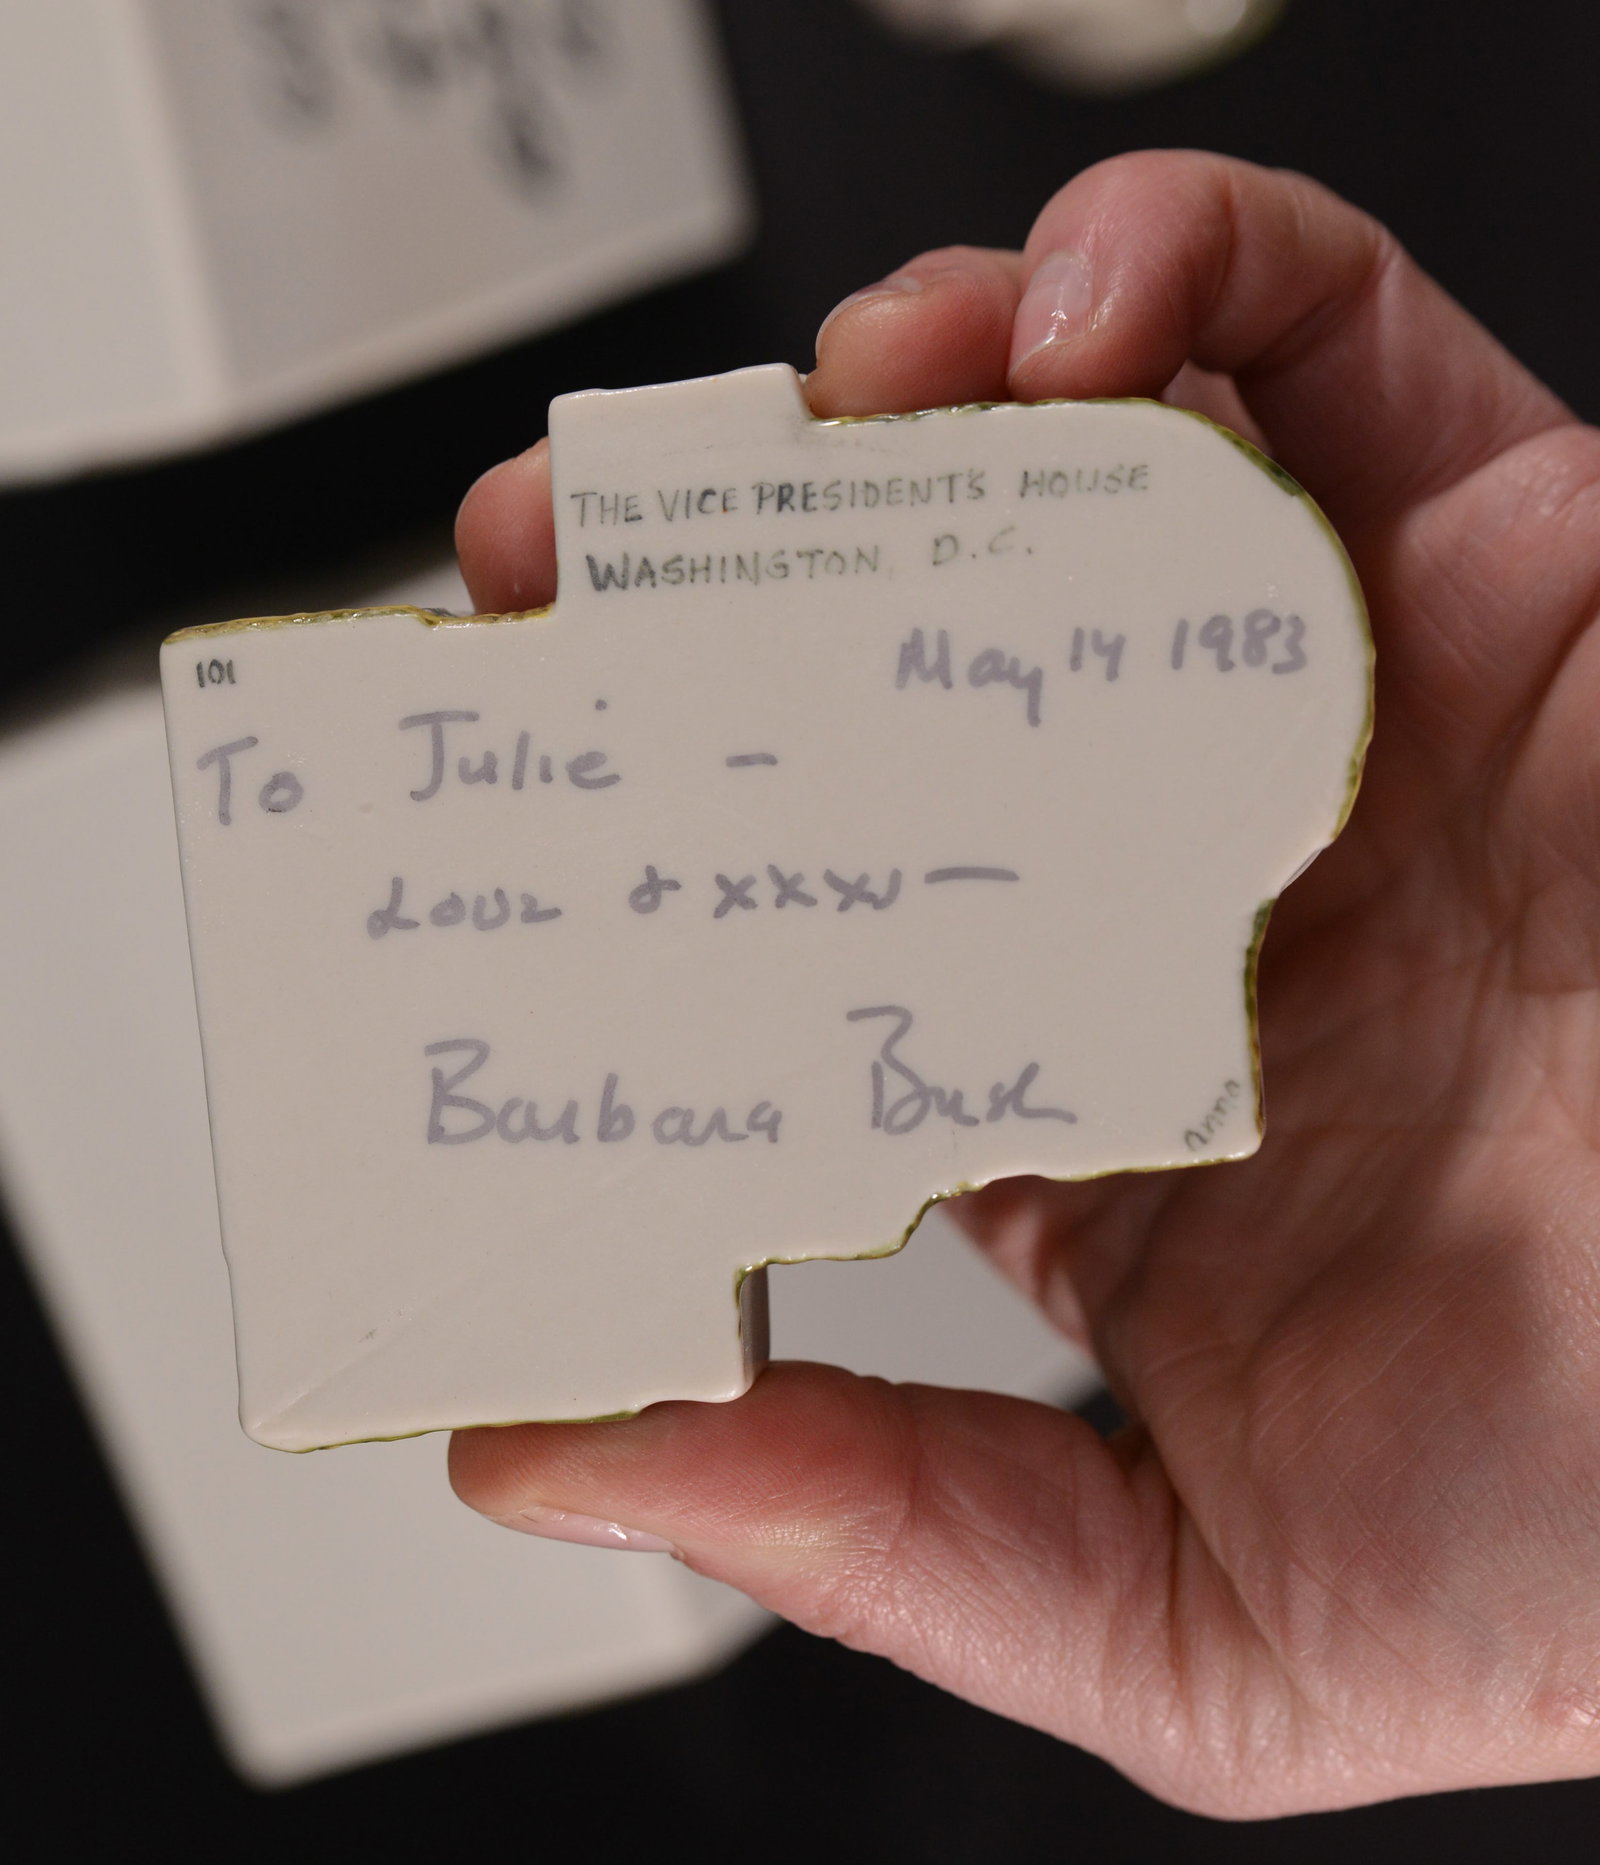 THE VICE PRESIDENT'S HOUSE
WASHINGTON, D.C.
May 14 1983
101
To Julie –
Love & xxxx —
Barbara Bush
anna